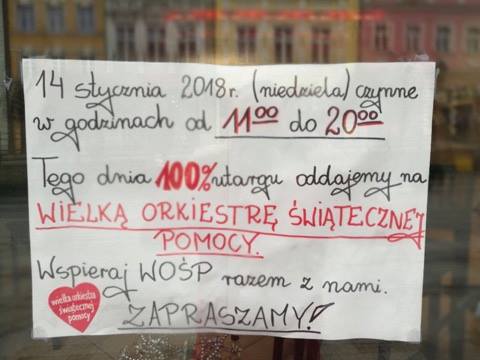 14 stycznia 2018r. (niedziela) czynne
w godzinach od 11⁰⁰ do 20⁰⁰
Tego dnia 100% utargu oddajemy na
WIELKĄ ORKIESTRĘ ŚWIĄTECZNEJ
POMOCY.
Wspieraj WOŚP razem z nami.
wielka orkiestra
świątecznej
pomocy
ZAPRASZAMY!